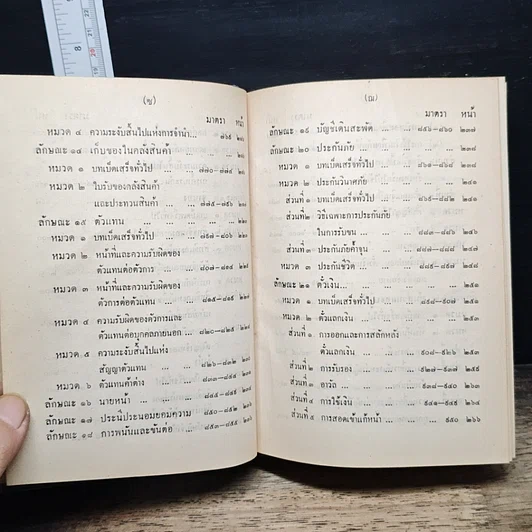 (ซ)
มาตรา หน้า
หมวด ๔ ความระงับสิ้นไปแห่งการจำนำ... ๗๖๙
ลักษณะ ๑๔ เก็บของในคลังสินค้า
หมวด ๑ บทเบ็ดเสร็จทั่วไป ... ๗๗๐—๗๗๔
หมวด ๒ ใบรับของคลังสินค้า
และประทวนสินค้า ... ๗๗๕—๗๙๖
ลักษณะ ๑๕ ตัวแทน ... ...
หมวด ๑ บทเบ็ดเสร็จทั่วไป ... ๗๙๗—๘๐๖
หมวด ๒ หน้าที่และความรับผิดของ
ตัวแทนต่อตัวการ ... ๘๐๗—๘๑๔
หมวด ๓ หน้าที่และความรับผิดของ
ตัวการต่อตัวแทน ... ๘๑๕—๘๑๙
หมวด ๔ ความรับผิดของตัวการและ
ตัวแทนต่อบุคคลภายนอก... ๘๒๐—๘๒๕
หมวด ๕ ความระงับสิ้นไปแห่ง
สัญญาตัวแทน ... ๘๒๖—๘๓๒
หมวด ๖ ตัวแทนค้าต่าง ... ๘๓๓—๘๔๔
ลักษณะ ๑๖ นายหน้า ... ... ๘๔๕—๘๔๙
ลักษณะ ๑๗ ประนีประนอมยอมความ ๘๕๐—๘๕๒
ลักษณะ ๑๘ การพนันและขันต่อ ... ๘๕๓—๘๕๕
(ฌ)
มาตรา หน้า
ลักษณะ ๑๙ บัญชีเดินสะพัด ... ๘๕๖—๘๖๐ ๒๓๗
ลักษณะ ๒๐ ประกันภัย ... ... ๒๓๘
หมวด ๑ บทเบ็ดเสร็จทั่วไป ... ๘๖๑—๘๖๘ ๒๓๘
หมวด ๒ ประกันวินาศภัย ... ... ๒๔๑
ส่วนที่ ๑ บทเบ็ดเสร็จทั่วไป ... ๘๖๙—๘๘๒ ๒๔๑
ส่วนที่ ๒ วิธีเฉพาะการประกันภัย
ในการรับขน ... ๘๘๓—๘๘๖ ๒๔๖
ส่วนที่ ๓ ประกันภัยค้ำจุน ... ๘๘๗—๘๘๘ ๒๔๗
หมวด ๓ ประกันชีวิต ... ... ๘๘๙—๘๙๗
ลักษณะ ๒๑ ตั๋วเงิน... ... ... ๒๕๑
หมวด ๑ บทเบ็ดเสร็จทั่วไป ... ๘๙๘—๙๐๗ ๒๕๑
หมวด ๒ ตั๋วแลกเงิน ... ... ๒๕๓
ส่วนที่ ๑ การออกและการสลักหลัง
ตั๋วแลกเงิน ... ... ๒๕๓
ส่วนที่ ๒ การรับรอง ...
ส่วนที่ ๓ อาวัล ... ...
ส่วนที่ ๔ การใช้เงิน ...
ส่วนที่ ๕ การสอดเข้าแก้หน้า ... ๙๕๐ ๒๖๖